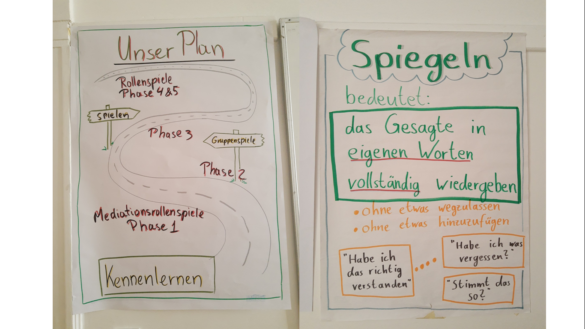 Unser Plan
Rollenspiele
Phase 4&5
spielen
Phase 3
Gruppenspiele
Phase 2
Mediationsrollenspiele
Phase 1
Kennenlernen
Spiegeln
bedeutet:
das Gesagte in
eigenen Worten
vollständig wiedergeben
• ohne etwas wegzulassen
• ohne etwas hinzuzufügen
"Habe ich
das richtig
verstanden"
"Habe ich was
vergessen?"
"Stimmt das
so?"